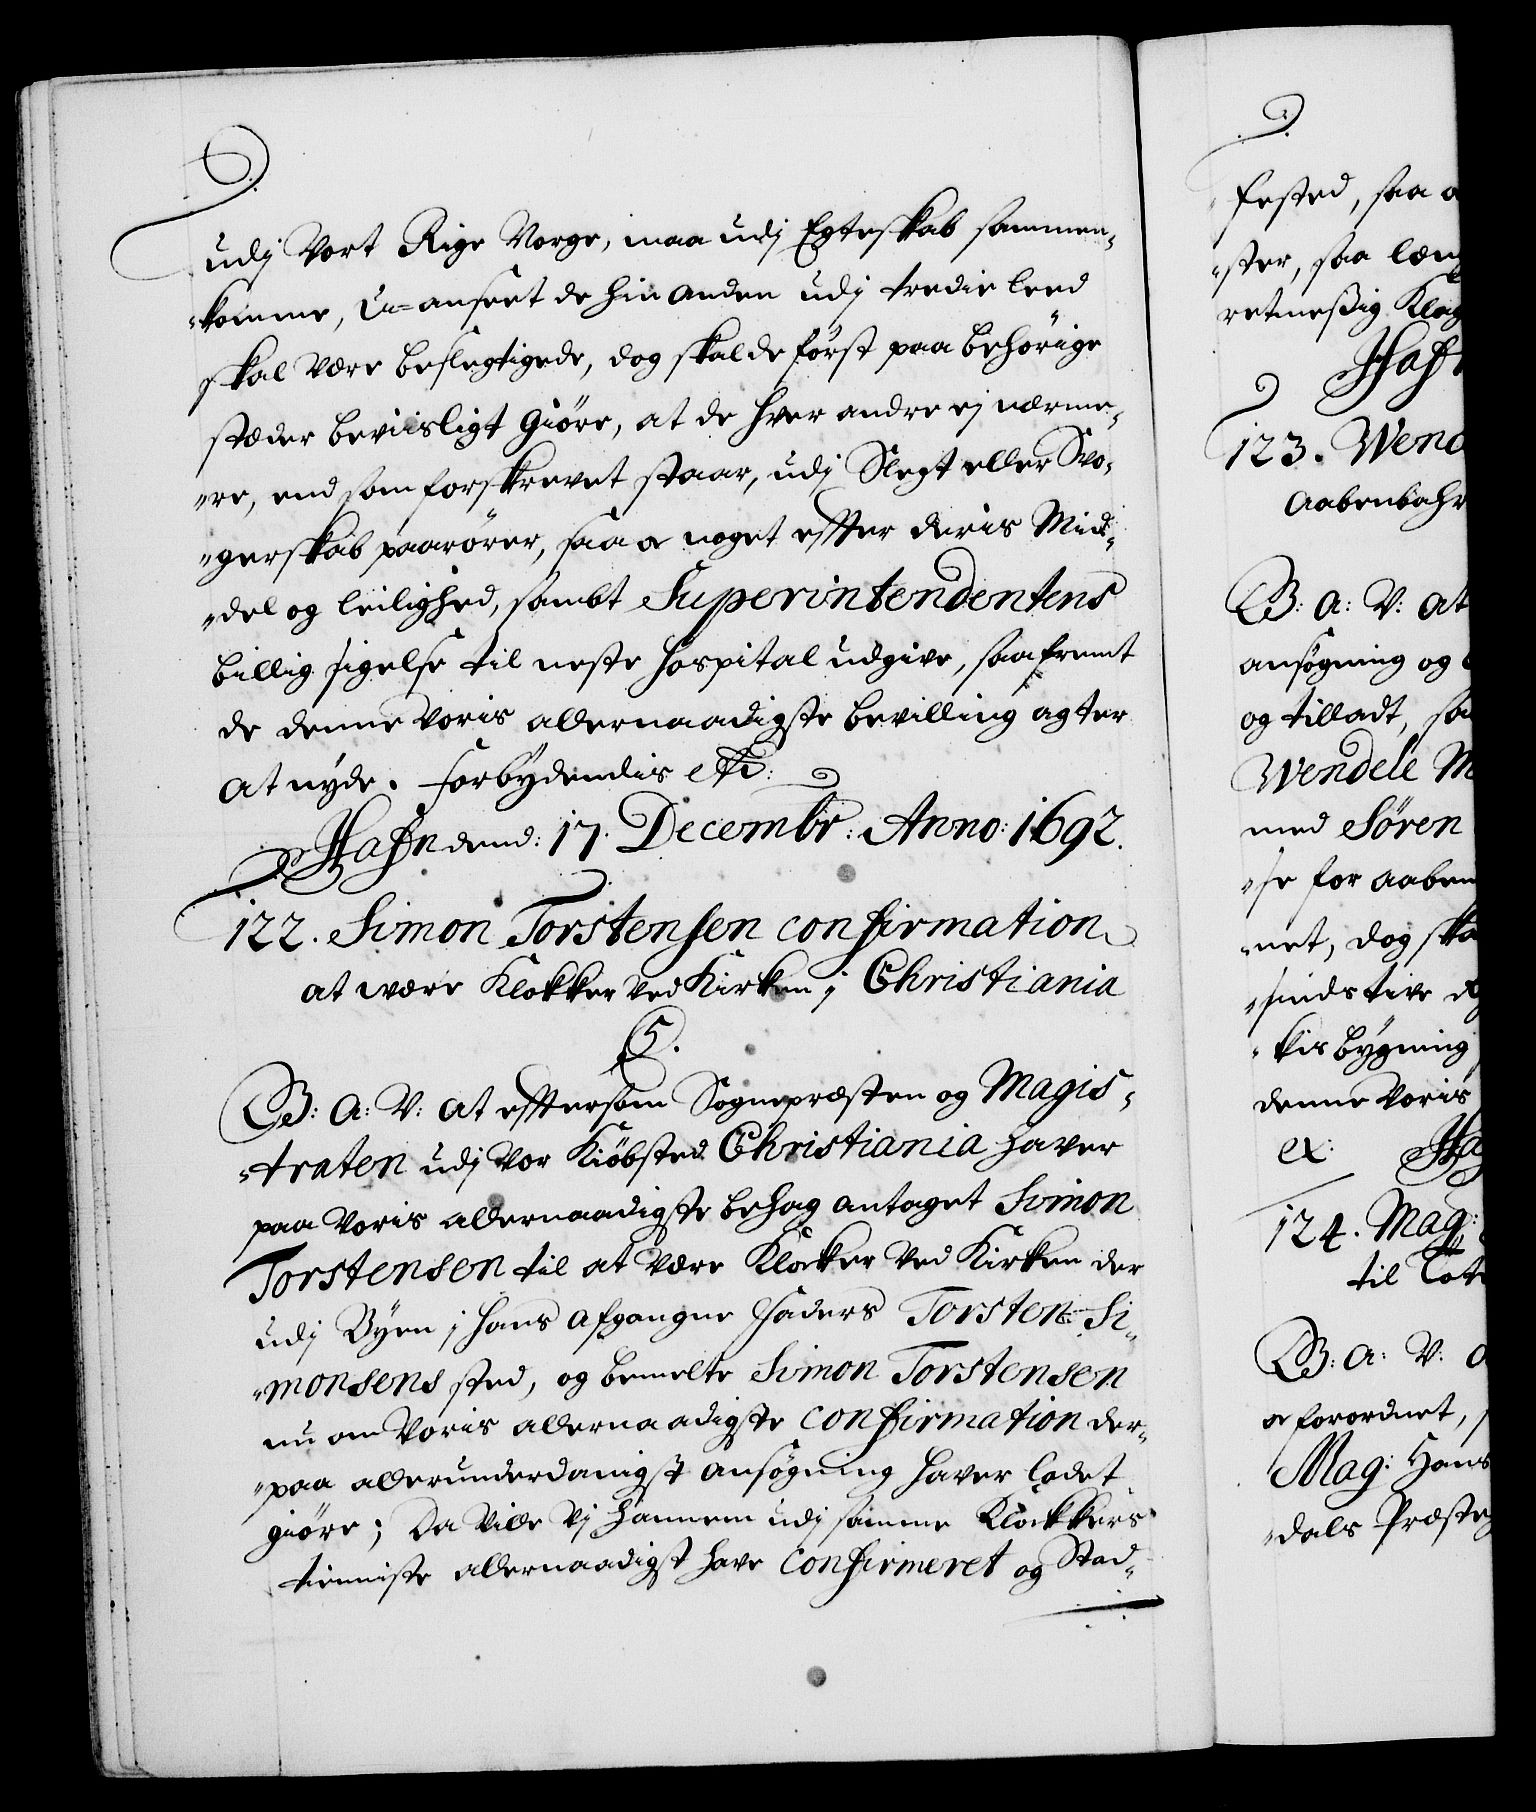 udj Vort Rige Norge, maa udj Egteskab sammen-
-komme, U-anseet de hin anden udj tredie leed
skal være beslegtigede, dog skal de först paa behörige
stæder beviisligt giöre, at de hver andre ej nærme-
-re, end som forskrevet staar, udj Slegt eller Svo-
-gerskab paarörer, saa og noget effter deris Mid-
-del og leilighed, sambt Superintendentens
billig sigelse til neste Hospital udgive, saafremt
de denne Voris allernaadigste bevilling agter
at nyde. Forbydendis etc:
Hafn dend: 17. Decembr: Anno: 1692.
122. Simon Torstensen confirmation
at være Klokker ved Kirken j Christiania
C5.
B: A: V: at effersom Sognepræsten og Magis-
-traten udj vor Kiöbsted Christiania haver
paa Voris allernaadigste behag antaget Simon
Torstensen til at være Klocker ved Kirken der
udj Byen j hans afgangne Faders Torsten Si-
-monsens sted, og bemelte Simon Torstensen
nu om Voris allernaadigste confirmation der-
-paa allerunderdanigst ansögning haver ladet
giöre; Da Ville Vj hannem udj samme Klockkers
tienniste allernaadigst have confirmeret og Stad-
fested, saa
-ster, saa
retmeßig
Haf
123. Wend
Aabenbahr
B: A: V: at
ansögning og
og tilladt,
Wendele
med Sören
-se for aaben
-net, dog
-sindstive
-kis bygning
denne Voris
etc:
124. Mag:
til
B: A: V:
og forordnet,
Mag: Hans
-dals Præste